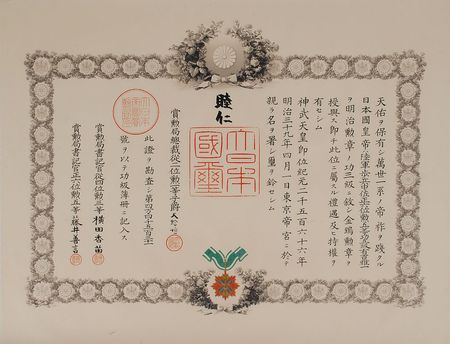 天佑ヲ保有シ萬世一系ノ帝祚ヲ踐タル
日本國皇帝ハ陸軍
ヲ明治勲章ノ功三級ニ敘シ金鵄勲章ヲ
授與ス即チ此位ニ屬スル禮遇及ヒ特權ヲ
有セシム
神武天皇即位紀元二千五百六十六年
明治三十九年四月一日東京帝宮ニ於テ
親ラ名ヲ署シ璽ヲ鈐セシム
睦仁
大日本
國璽
賞勲局総裁從二位勲一等子爵大給恒
此證ヲ勘査シ第
號ヲ以テ功級簿冊ニ記入ス
賞勲局書記官從四位勲三等横田香苗
賞勲局書記官正六位勲五等藤井善言